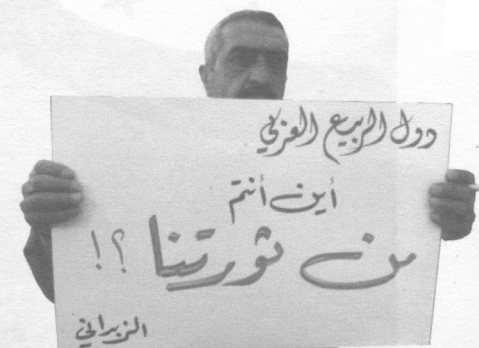 دول الربيع العربي
أين أنتم
من ثورتنا ؟!
الزبداني